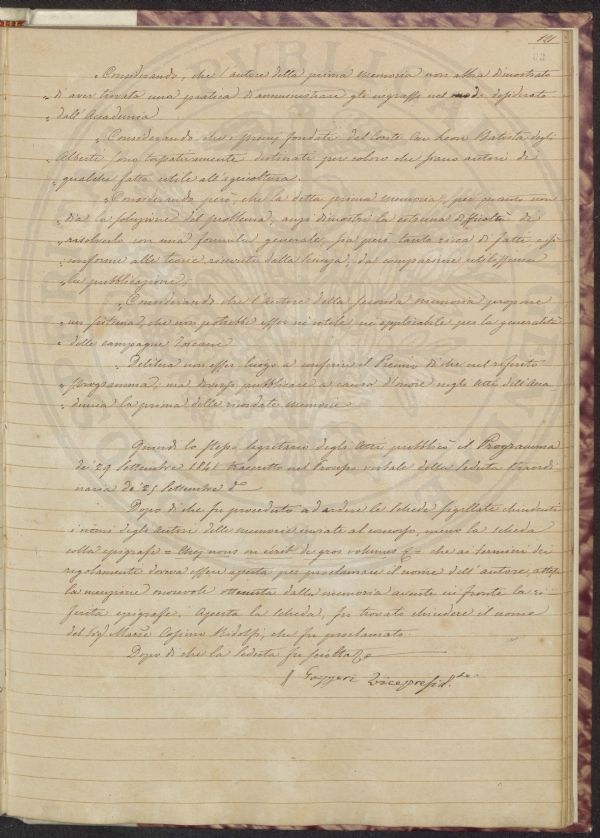 121
„ Considerando, che l'autore della prima memoria non abbia dimostrato
„ di aver trovata una pratica di amministrare gli ingrassi nel modo desiderato
„ dall'Accademia
„ Considerando che i premj fondati dal Conte Cav Leon Batista degli
„ Alberti sono tassativamente destinati per coloro che siano autori di
„ qualche fatto utile all'agricoltura.
„ Considerando però, che la detta prima memoria, per quanto non
„ dia la soluzione del problema, anzi dimostri la estrema difficoltà di
„ risolverlo con una formula generale, sia però tanto ricca di fatti e sì
„ conforme alle teorie ricevute dalla scienza, da comparirne utilissima
„ la pubblicazione;
„ Considerando che l'autore della seconda memoria propone
„ un sistema, che non potrebbe esser nè utile nè applicabile per la generalità
„ delle campagne toscane
„ Delibera non esser luogo a conferire il Premio di che nel riferito
„ programma, ma doversi pubblicare a causa d'onore negli Atti dell'Acca
„ demia la prima delle ricordate memorie
Quindi lo stesso Segretario degli Atti pubblicò il Programma
de' 29 Settembre 1841 trascritto nel Processo verbale della Seduta straordi
naria de' 25 Settembre d°
Dopo di che fu proceduto ad ardere le schede sigillate chiudenti
i nomi degli autori delle memorie inviate al concorso, meno la scheda
colla epigrafe = Chez nous on écrit de gros volumes = che ai termini dei
regolamenti doveva essere aperta per proclamare il nome dell'autore, attesa
la menzione onorevole ottenuta dalla memoria avente in fronte la ri
ferita epigrafe. Aperta la scheda, fu trovato chiudere il nome
del Sig Marse Cosimo Ridolfi, che fu proclamato
Dopo di che la Seduta fu sciolta
Gazzeri Vicepresid.te